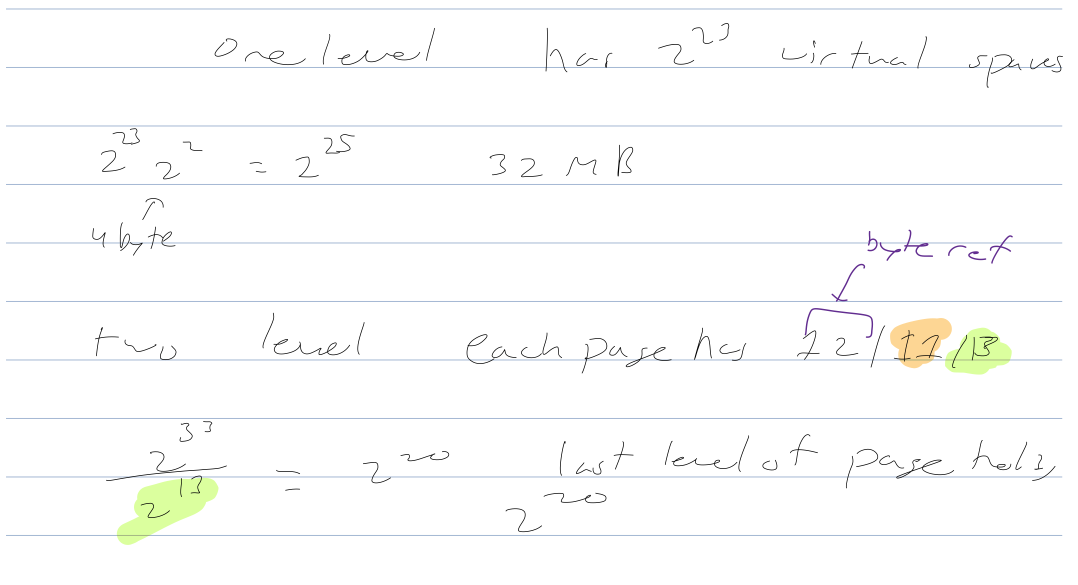 one level has 2^23 virtual spaces
2^23 2^2 = 2^25 32 MB
4 byte
byte ref
two level each page has 12/11/13
2^33 / 2^13 = 2^20 last level of page holds
2^20